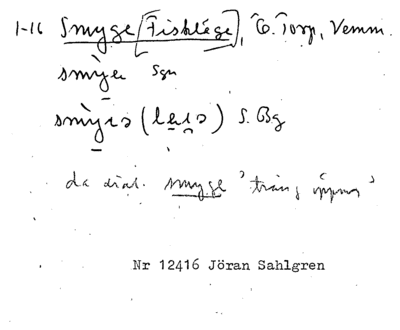 1-16 Smyge [Fiskläge], Ö. Torp, Vemm.
smỳɐ Sgn
smỳɪə (lɛɪə) S. Bg
da dial. smyge 'trång öppning'
Nr 12416 Jöran Sahlgren